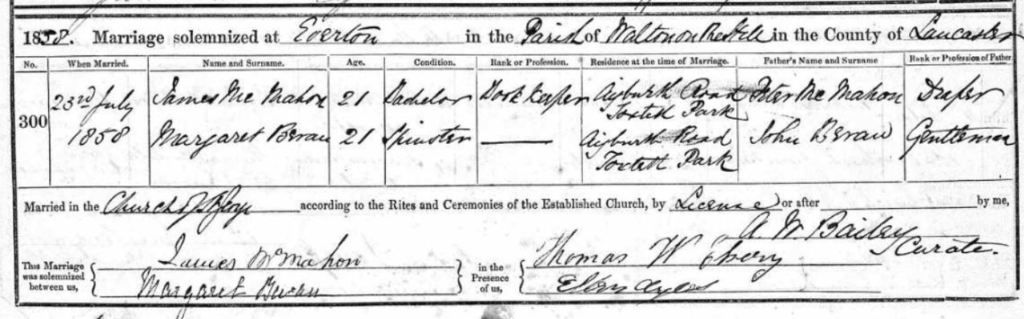 1858. Marriage solemnized at Everton in the Parish of Walton on the Hill in the County of Lancaster
No. When Married. Name and Surname. Age. Condition. Rank or Profession. Residence at the time of Marriage. Father's Name and Surname Rank or Profession of Father
300
23rd July James Mc Mahon 21 Bachelor Book Keeper Aigburth Road Peter Mc Mahon Draper
Toxteth Park
1858 Margaret Bevan 21 Spinster Aigburth Road John Bevan Gentleman
Toxteth Park
Married in the Church of St. George according to the Rites and Ceremonies of the Established Church, by License or after by me,
A. W. Bailey
Curate.
This Marriage was solemnized between us,
James McMahon
Margaret Bevan
in the Presence of us,
Thomas W